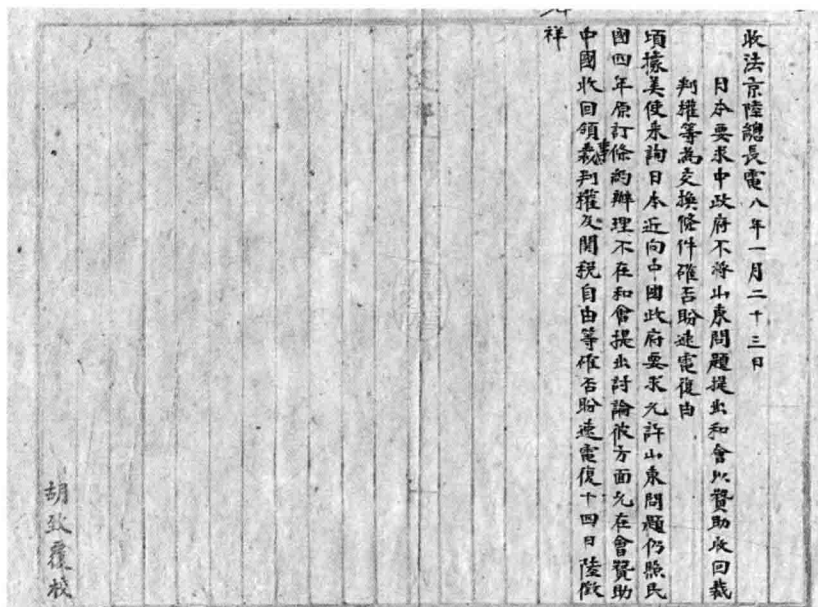 收法京陸總長電八年一月二十三日
日本要求中政府不將山東問題提出和會以贊助收回裁
判權等為交換條件確否盼速電復由
頃據美使來詢日本近向中國政府要求允許山東問題仍照民
國四年原訂條約辦理不在和會提出討論彼方面允在會贊助
中國收回領事裁判權及關稅自由等確否盼速電復十四日陸徵
祥
胡致覆校